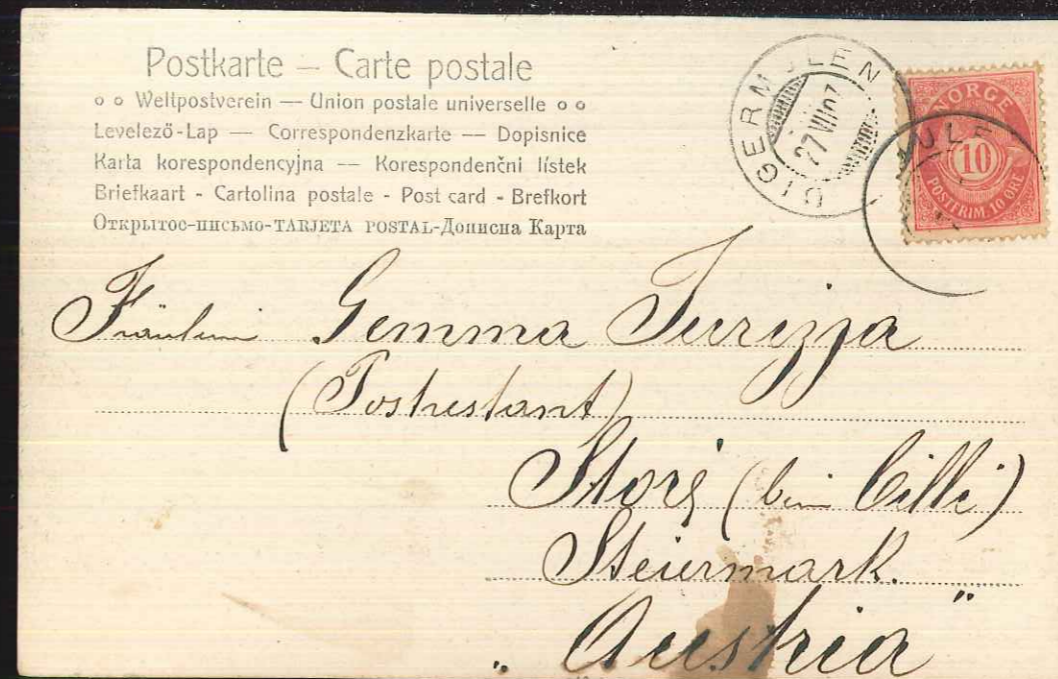 Postkarte — Carte postale
Weltpostverein — Union postale universelle
Levelező-Lap — Correspondenzkarte — Dopisnice
Karta korespondencyjna — Korespondenční lístek
Briefkaart - Cartolina postale - Post card - Brefkort
Открытое-письмо-TARJETA POSTAL-Дописна Карта
DIGERMULEN
27 VII 03
NORGE
10
POSTFRIM. 10 ØRE
ULE
Fräulein Gemma Turizza
(Postrestant)
Storé (bei Cilli)
Steiermark.
„ Austria "